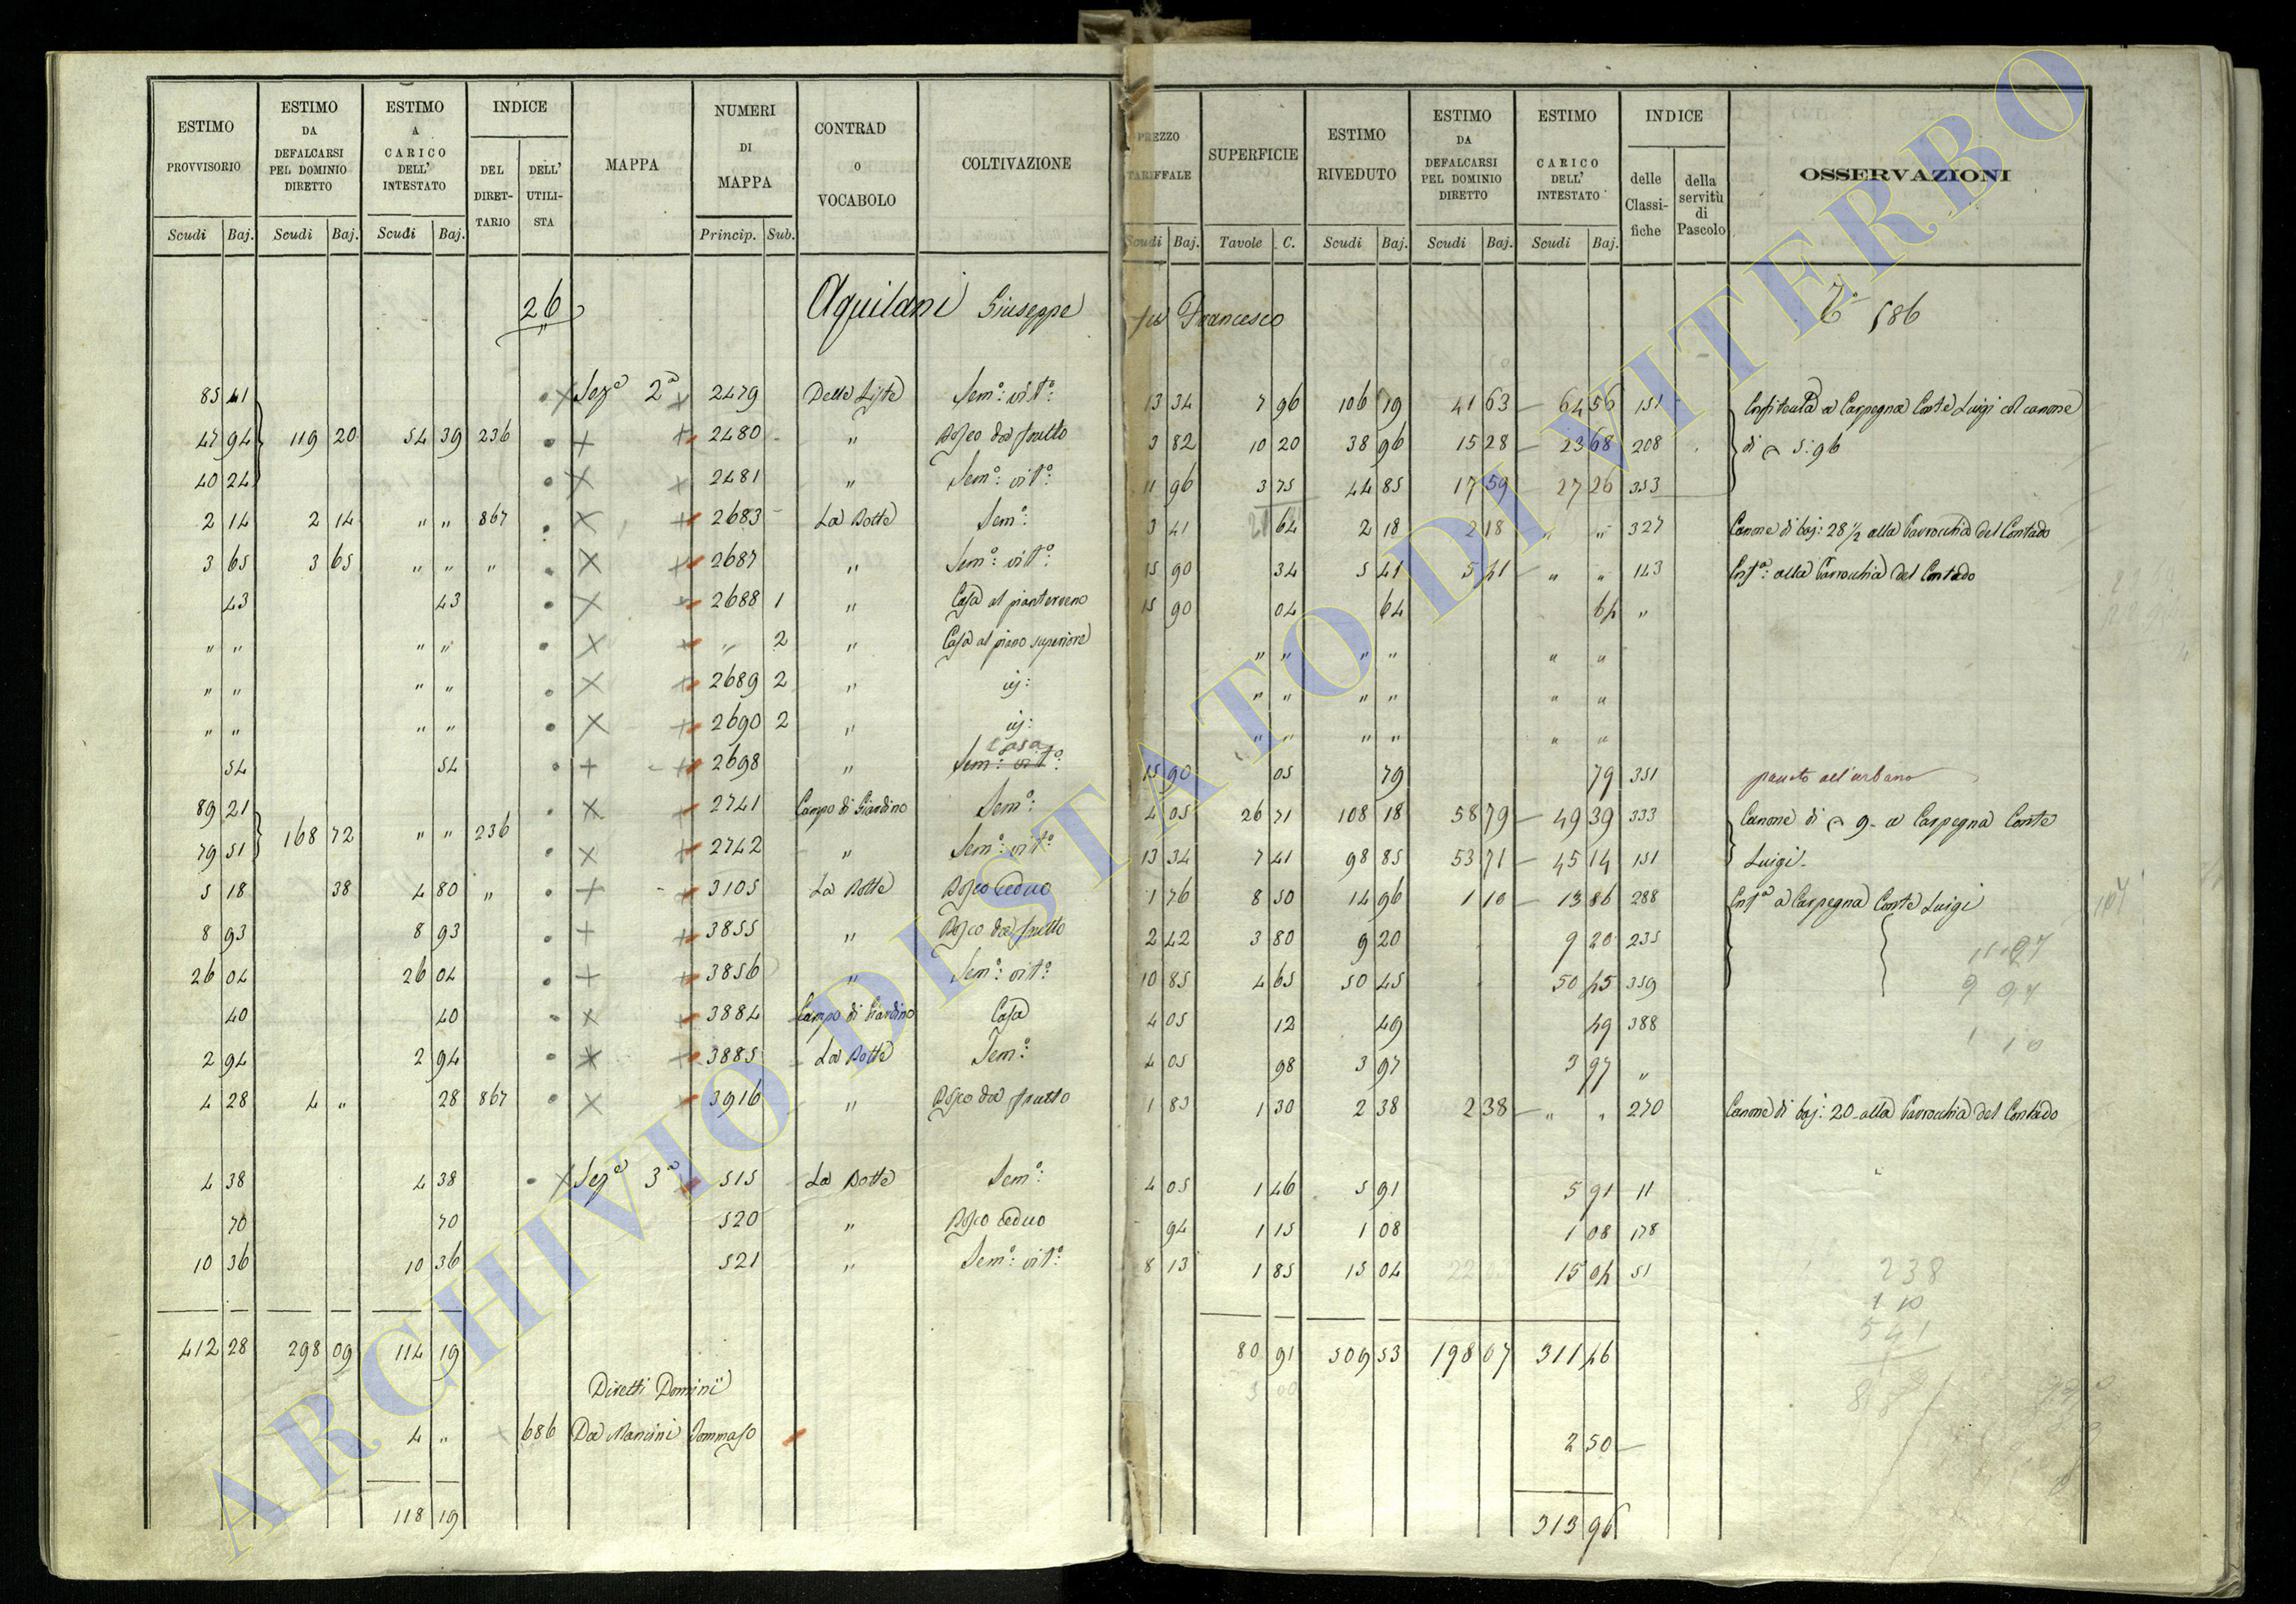 ESTIMO PROVVISORIO | ESTIMO DA DEFALCARSI PEL DOMINIO DIRETTO | ESTIMO A CARICO DELL' INTESTATO | INDICE | MAPPA | NUMERI DI MAPPA | CONTRAD o VOCABOLO | COLTIVAZIONE | PREZZO TARIFFALE | SUPERFICIE | ESTIMO RIVEDUTO | ESTIMO DA DEFALCARSI PEL DOMINIO DIRETTO | ESTIMO CARICO DELL' INTESTATO | INDICE | OSSERVAZIONI
DEL DIRET-TARIO | DELL' UTILI-STA | delle Classi-fiche | della servitù di Pascolo
Scudi | Baj. | Scudi | Baj. | Scudi | Baj. | Princip. | Sub. | Scudi | Baj. | Tavole | C. | Scudi | Baj. | Scudi | Baj. | Scudi | Baj.
26 Aquilani Giuseppe fu Francesco 586
85 41 | Sez.e 2a | 2479 | Delle Liste | Sem.o: vit.o: | 13 34 | 7 96 | 106 19 | 41 63 | 64 56 | 151 | a Carpegna Conte Luigi col canone
47 94 | 119 20 | 54 39 | 236 | 2480 | " | Bosco da frutto | 3 82 | 10 20 | 38 96 | 15 28 | 23 68 | 208 | di 5:96
40 24 | 2481 | " | Sem.o: vit.o: | 11 96 | 3 75 | 44 85 | 17 59 | 27 26 | 353
2 14 | 2 14 | " " | 867 | 2683 | La Botte | Sem.o: | 3 41 | 64 | 2 18 | 2 18 | " " | 327 | Canone di baj: 28 1/2 alla Parrocchia del Contado
3 65 | 3 65 | " " | " | 2687 | " | Sem.o: vit.o: | 15 90 | 34 | 5 41 | 5 41 | " " | 143 | alla Parrocchia del Contado
43 | 43 | 2688 | 1 | " | Casa al pianterreno | 15 90 | 04 | 64 | 64 | "
" " | " " | " | 2 | " | Casa al piano superiore | " " | " " | " "
" " | " " | 2689 | 2 | " | " " | " " | " "
" " | " " | 2690 | 2 | " | " " | " " | " "
casa
54 | 54 | 2698 | " | Sem.o: vit.o: | 15 90 | 05 | 79 | 79 | 351 | all'urbano
89 21 | 2741 | Campo di Giardino | Sem.o: | 4 05 | 26 71 | 108 18 | 58 79 | 49 39 | 333 | Canone di 9- a Carpegna Conte
79 51 | 168 72 | " " | 236 | 2742 | " | Sem.o: vit.o: | 13 34 | 7 41 | 98 85 | 53 71 | 45 14 | 151 | Luigi.
5 18 | 38 | 4 80 | " | 3105 | La Botte | Bosco ceduo | 1 76 | 8 50 | 14 96 | 1 10 | 13 86 | 288 | a Carpegna Conte Luigi
8 93 | 8 93 | 3855 | " | Bosco da frutto | 2 42 | 3 80 | 9 20 | 9 20 | 235
26 04 | 26 04 | 3856 | " | Sem.o: vit.o: | 10 85 | 4 65 | 50 45 | 50 45 | 359
40 | 40 | 3884 | Campo di Giardino | Casa | 4 05 | 12 | 49 | 49 | 388
2 94 | 2 94 | 3885 | La Botte | Sem.o: | 4 05 | 98 | 3 97 | 3 97 | " | 1 10
4 28 | 4 " | 28 | 867 | 3916 | " | Bosco da frutto | 1 83 | 1 30 | 2 38 | 2 38 | " " | 270 | Canone di baj: 20 alla Parrocchia del Contado
4 38 | 4 38 | Sez.e 3a | 515 | La Botte | Sem.o: | 4 05 | 1 46 | 5 91 | 5 91 | 11
70 | 70 | 520 | " | Bosco ceduo | 94 | 1 15 | 1 08 | 1 08 | 178
10 36 | 10 36 | 521 | " | Sem.o: vit.o: | 8 13 | 1 85 | 15 04 | 15 04 | 51 | 238
1 10
541
412 28 | 298 09 | 114 19 | 80 91 | 509 53 | 198 07 | 311 46
Diretti Dominii
4 " | 686 | Da Mancini Tommaso | 2 50
118 19 | 313 96
ARCHIVIO DI STATO DI VITERBO